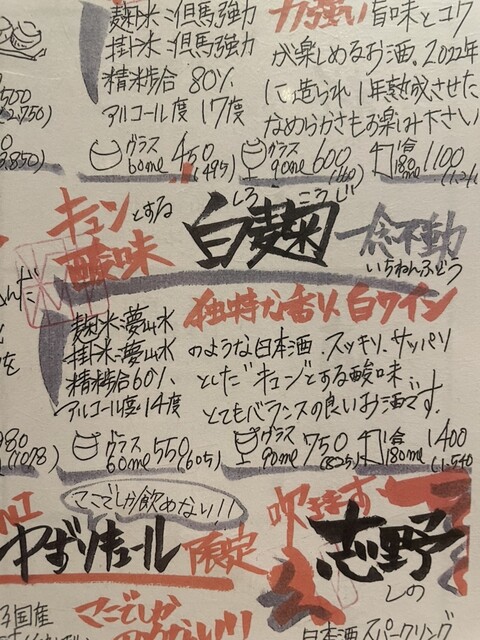 麹米:但馬強力
掛米:但馬強力
精米歩合 80%
アルコール度 17度
力強い旨味とコク
が楽しめるお酒。2022年
に造られ1年熟成させた
なめらかさもお楽しみ下さい
500
(2,750)
(3,850)
グラス 60ml 450 (495)
グラス 90ml 600
1合 180ml 1100
キュンとする
酸味
しろ こうじ
白麹
一念不動
いちねんふどう
麹米:夢山水
掛米:夢山水
精米歩合60%
アルコール度:14度
独特な香り、白ワイン
のような日本酒。スッキリ、サッパリ
とした"キュン"とする酸味。
とてもバランスの良いお酒です。
980
(1,078)
グラス 60ml 550 (605)
グラス 90ml 750 (825)
1合 180ml 1400 (1,540
ここでしか飲めない!!
ゆずリキュール
限定
吹き寄す
志野
しの
国産
ここでしか
日本酒スパークリング